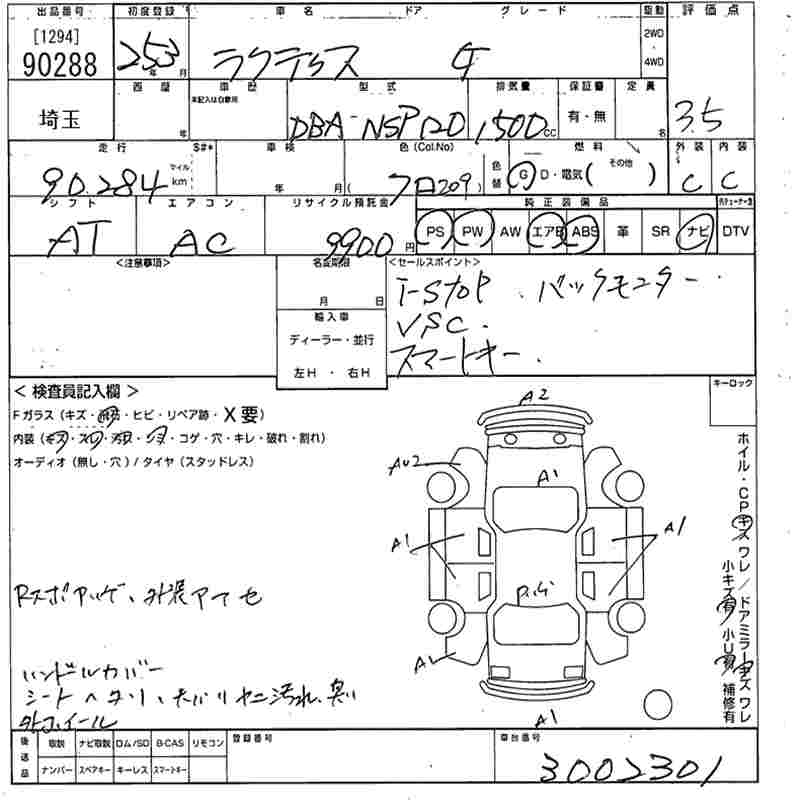 出品番号 初度登録 車名 ドア グレード 駆動 評価点
[1294]
90288 253 年 月 ラクティス G 2WD ・ 4WD 3.5
埼玉 車歴 型式 排気量 保証書 定員
本記入は自家用
年 DBA-NSP120 1500 CC 有・無 名
走行 S#* 車検 色(Col.No) 色替 燃料 外装 内装
90.284 マイル km 年 月 ( クロ209 ) G D・電気( その他 ) C C
シフト エアコン リサイクル預託金 純正装備品
AT AC 9900 円 PS PW AW エアB ABS 革 SR ナビ DTV
<注意事項> 名変期限 <セールスポイント>
月 日 I-STOP . バックモニター .
輸入車 VSC .
ディーラー・並行 スマートキー .
左H ・ 右H
< 検査員記入欄 > キーロック
Fガラス (キズ・飛石・ヒビ・リペア跡・X要)
内装 (キズ・スレ・汚れ・シミ・コゲ・穴・キレ・破れ・割れ)
オーディオ (無し・穴) / タイヤ (スタッドレス)
A2
AU2 A1
A1 A1
A1
ホイル・CPキズ ワレ / ドアミラーキズ ワレ
小キズ有 小U有 補修有
外装アセ
ハンドルカバー
シートヘタリ、天バリヤニ汚れ、臭い
後送品 取説 ナビ取説 ロム/SD B-CAS リモコン 登録番号 車台番号
ナンバー スペアキー キーレス スマートキー 3002301